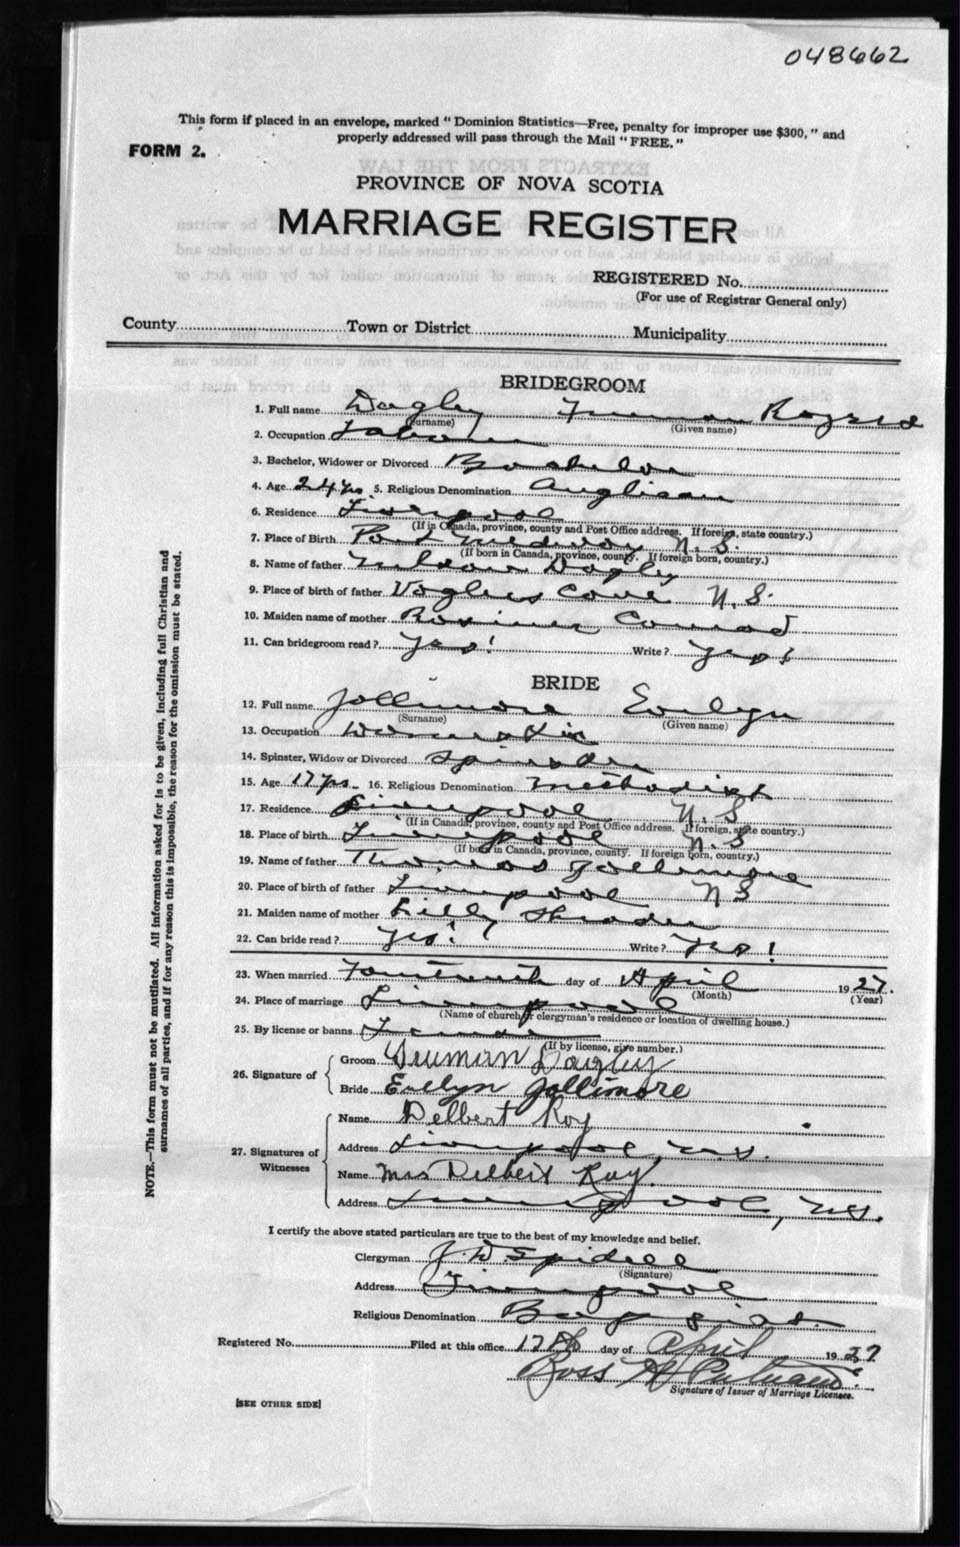 048662
This form if placed in an envelope, marked "Dominion Statistics—Free, penalty for improper use $300," and
properly addressed will pass through the Mail "FREE."
FORM 2.
PROVINCE OF NOVA SCOTIA
MARRIAGE REGISTER
REGISTERED No.
(For use of Registrar General only)
County Town or District Municipality
BRIDEGROOM
1. Full name Dagley Freeman
(Surname) (Given name)
2. Occupation Laborer
3. Bachelor, Widower or Divorced Bachelor
4. Age 24 yrs 5. Religious Denomination Anglican
6. Residence Liverpool
(If in Canada, province, county and Post Office address. If foreign, state country.)
7. Place of Birth Port Medway N.S.
(If born in Canada, province, county. If foreign born, country.)
8. Name of father Dagley
9. Place of birth of father Voglers Cove N.S.
10. Maiden name of mother Conrad
11. Can bridegroom read? Yes! Write? Yes!
BRIDE
12. Full name Jollimore Evelyn
(Surname) (Given name)
13. Occupation Domestic
14. Spinster, Widow or Divorced Spinster
15. Age 17 yrs 16. Religious Denomination Methodist
17. Residence Liverpool N.S
(If in Canada, province, county and Post Office address. If foreign, state country.)
18. Place of birth Liverpool N.S
(If born in Canada, province, county. If foreign born, country.)
19. Name of father Thomas Jollimore
20. Place of birth of father Liverpool NS
21. Maiden name of mother Lilly
22. Can bride read? Yes! Write? Yes!
23. When married Fourteenth day of April 1927.
(Month) (Year)
24. Place of marriage Liverpool
(Name of church, clergyman's residence or location of dwelling house.)
25. By license or banns License
(If by license, give number.)
26. Signature of
Groom Freeman Dagley
Bride Evelyn Jollimore
27. Signatures of Witnesses
Name Delbert Roy
Address Liverpool, N.S.
Name Mrs Delbert Roy.
Address Liverpool, N.S.
I certify the above stated particulars are true to the best of my knowledge and belief.
Clergyman J. W. Spidell
(Signature)
Address Liverpool
Religious Denomination Baptist.
Registered No. Filed at this office 17th day of April 1927
Ross H Putnam
Signature of Issuer of Marriage Licenses.
[SEE OTHER SIDE]
NOTE.—This form must not be mutilated. All information asked for is to be given, including full Christian and
surnames of all parties, and if for any reason this is impossible, the reason for the omission must be stated.